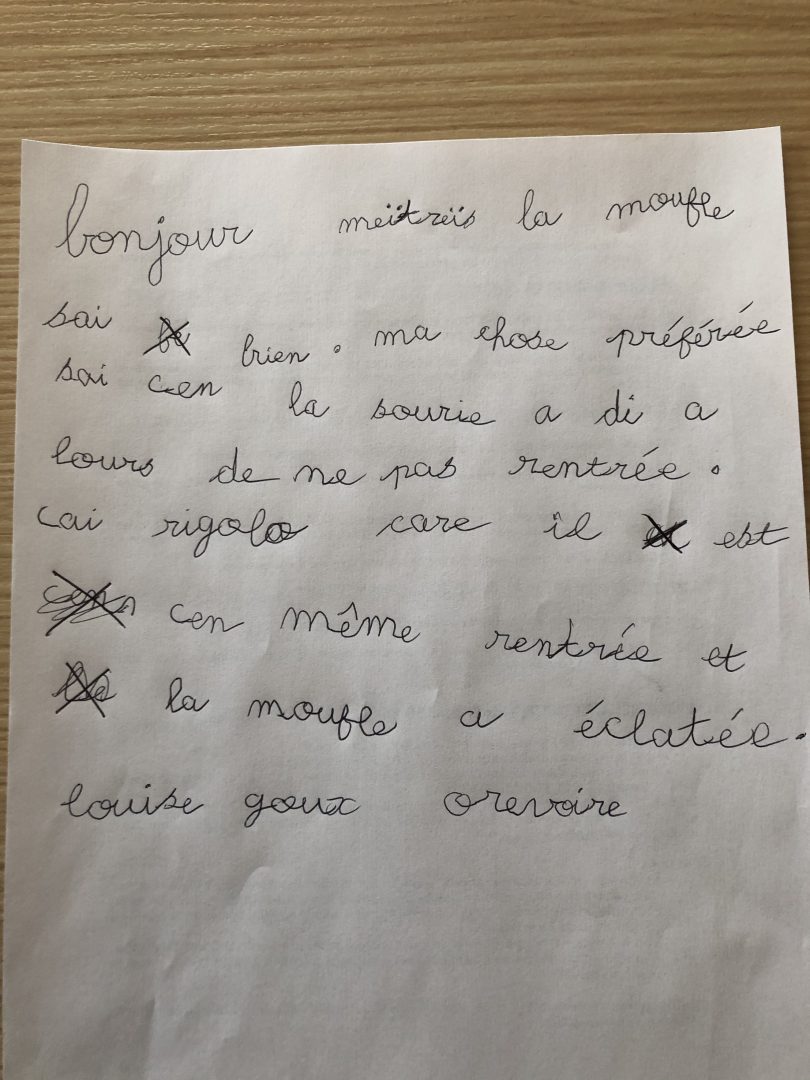 bonjour meïtreïs la moufle
sai bien. ma chose préférée
sai cen la sourie a di a
lours de ne pas rentrée.
cai rigolo care il est
cen même rentrée et
la moufle a éclatée.
louise goux orevoire